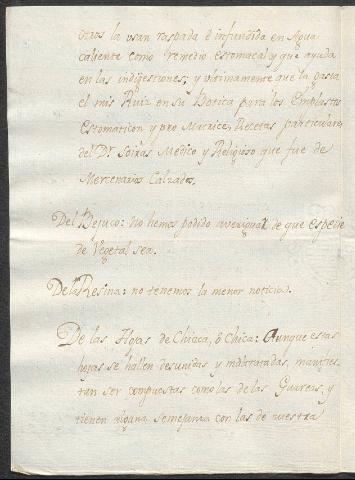 otros la usan raspada é infundida en Agua
caliente como remedio estomacal y que ayuda
en las indigestiones; y ultimamente que la gasta
el mis Ruiz en su Botica para los Emplastos
Estomaticon y pro Matrice, Recetas particulares
del Dr. Soiras Medico y Religioso que fue de
Mercenarios Calzados.
Del Bejuco: No hemos podido averiguar de que especie
de Vegetal sea.
De la Resina: no tenemos la menor noticia.
De las Hojas de Chiaca, ó Chica: Aunque estas
hojas se hallen desunidas y maltratadas, manifies-
tan ser compuestas como las de las Guareas, y
tienen alguna semejanza con las de nuestra